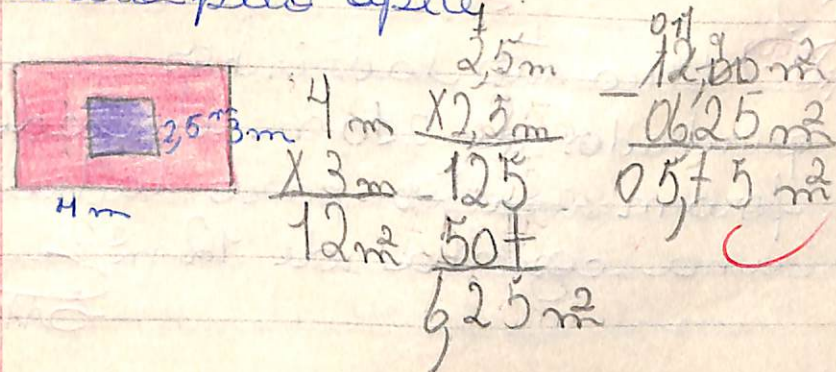 2,5 m 3 m
4 m
4 m
X 3 m
12 m²
1
2,5 m
X 2,5 m
125
50+
6,25 m²
12,00 m²
- 06,25 m²
05,75 m²